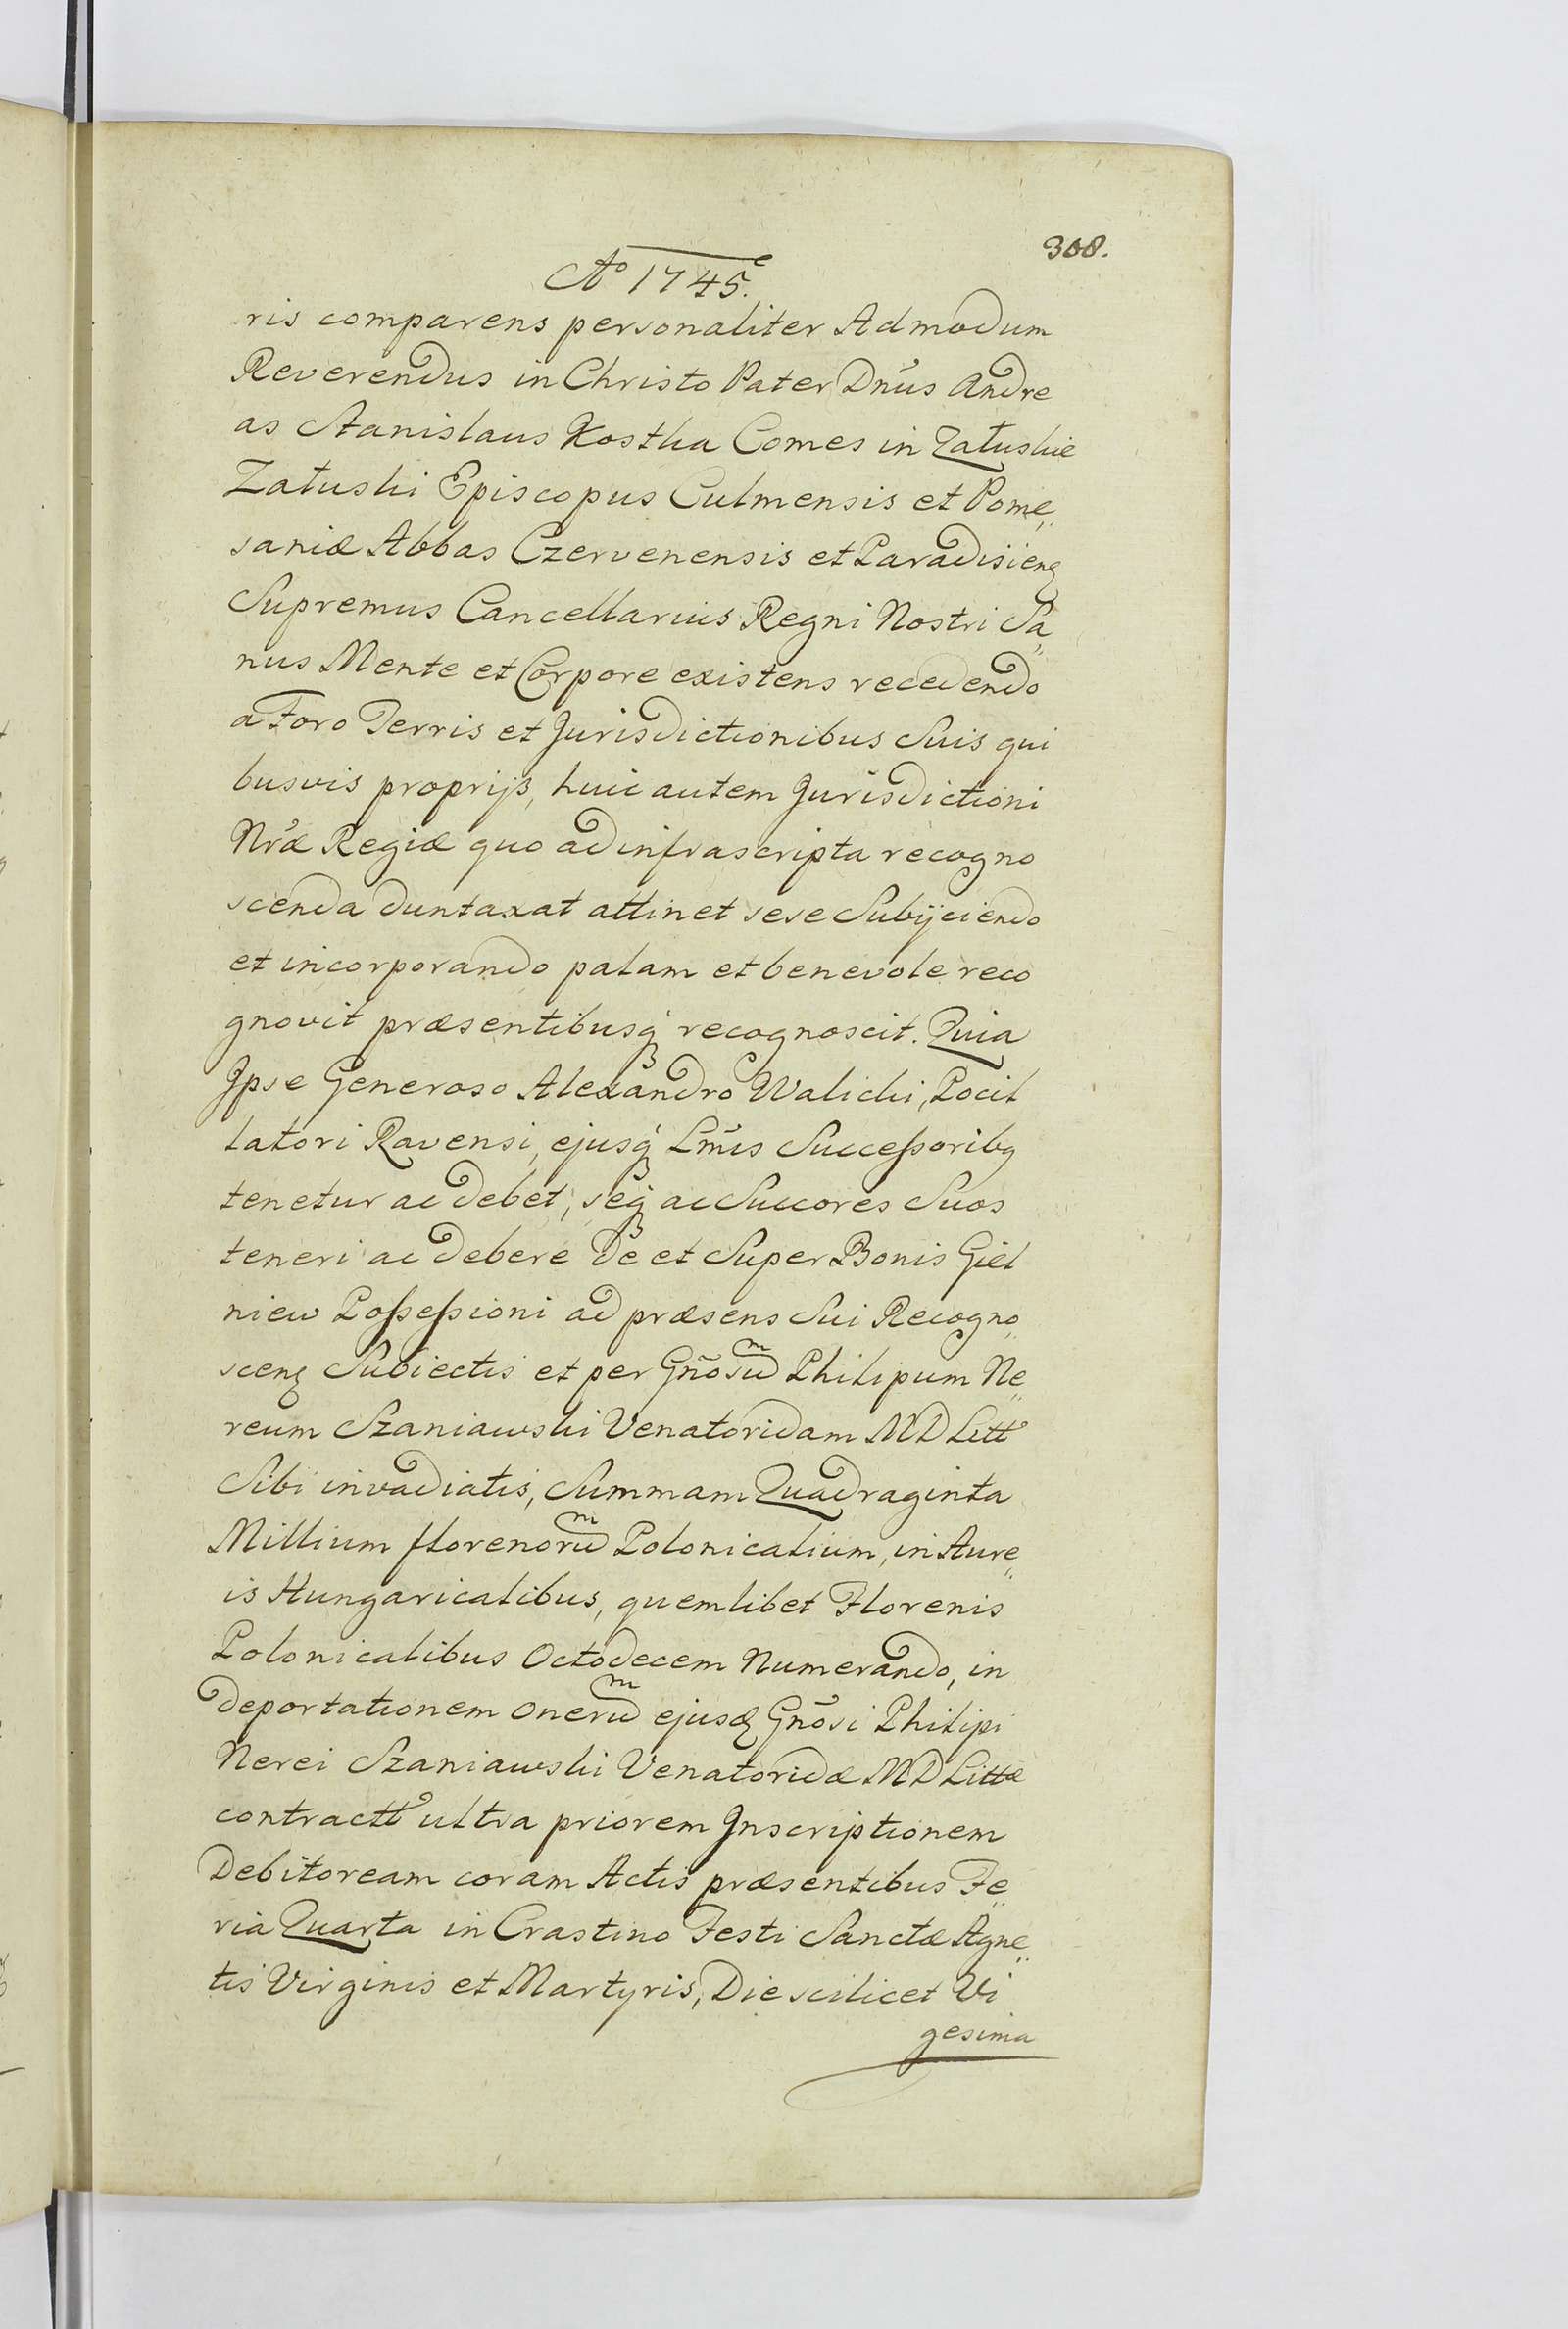 308.
Aº 1745.
ris comparens personaliter Admodum
Reverendus in Christo Pater Dnūs Andre
as Stanislaus Kostka Comes in Załuskie
Załuski Episcopus Culmensis et Pome„
saniæ Abbas Czervenensis et Paradisienꝫ
Supremus Cancellarius Regni Nostri Sa„
nus Mente et Corpore existens recedendo
a Foro Terris et Jurisdictionibus Suis qui
busvis proprijs, huic autem Jurisdictioni
Nrǣ Regiæ quo ad infrascripta recogno
scenda duntaxat attinet sese Subijciendo
et incorporando palam et benevole reco
gnovit præsentibusq; recognoscit. Quia
Jpse Generoso Alexandro Walicki, Pocil
latori Ravensi, ejusq; Lmīs Successoribꝫ
tenetur ac debet, seq; ac Succores Suos
teneri ac debere de et Super Bonis Giel
niew Possessioni ad præsens Sui Recogno„
scenꝫ Subiectis et per Gnōsum Philipum Ne„
reum Szaniawski Venatoridam MD Litt
Sibi invadiatis, Summam Quadraginta
Millium florenorum Polonicalium, in Aure„
is Hungaricalibus, quemlibet Florenis
Polonicalibus Octodecem Numerando, in
deportationem onerum ejusdꝫ Gnōsi Philipi
Nerei Szaniawski Venatoridæ MD Littæ
contractt ultra priorem Jnscriptionem
Debitoream coram Actis præsentibus Fe„
ria Quarta in Crastino Festi Sanctæ Agne„
tis Virginis et Martyris, Die scilicet Vi
gesima